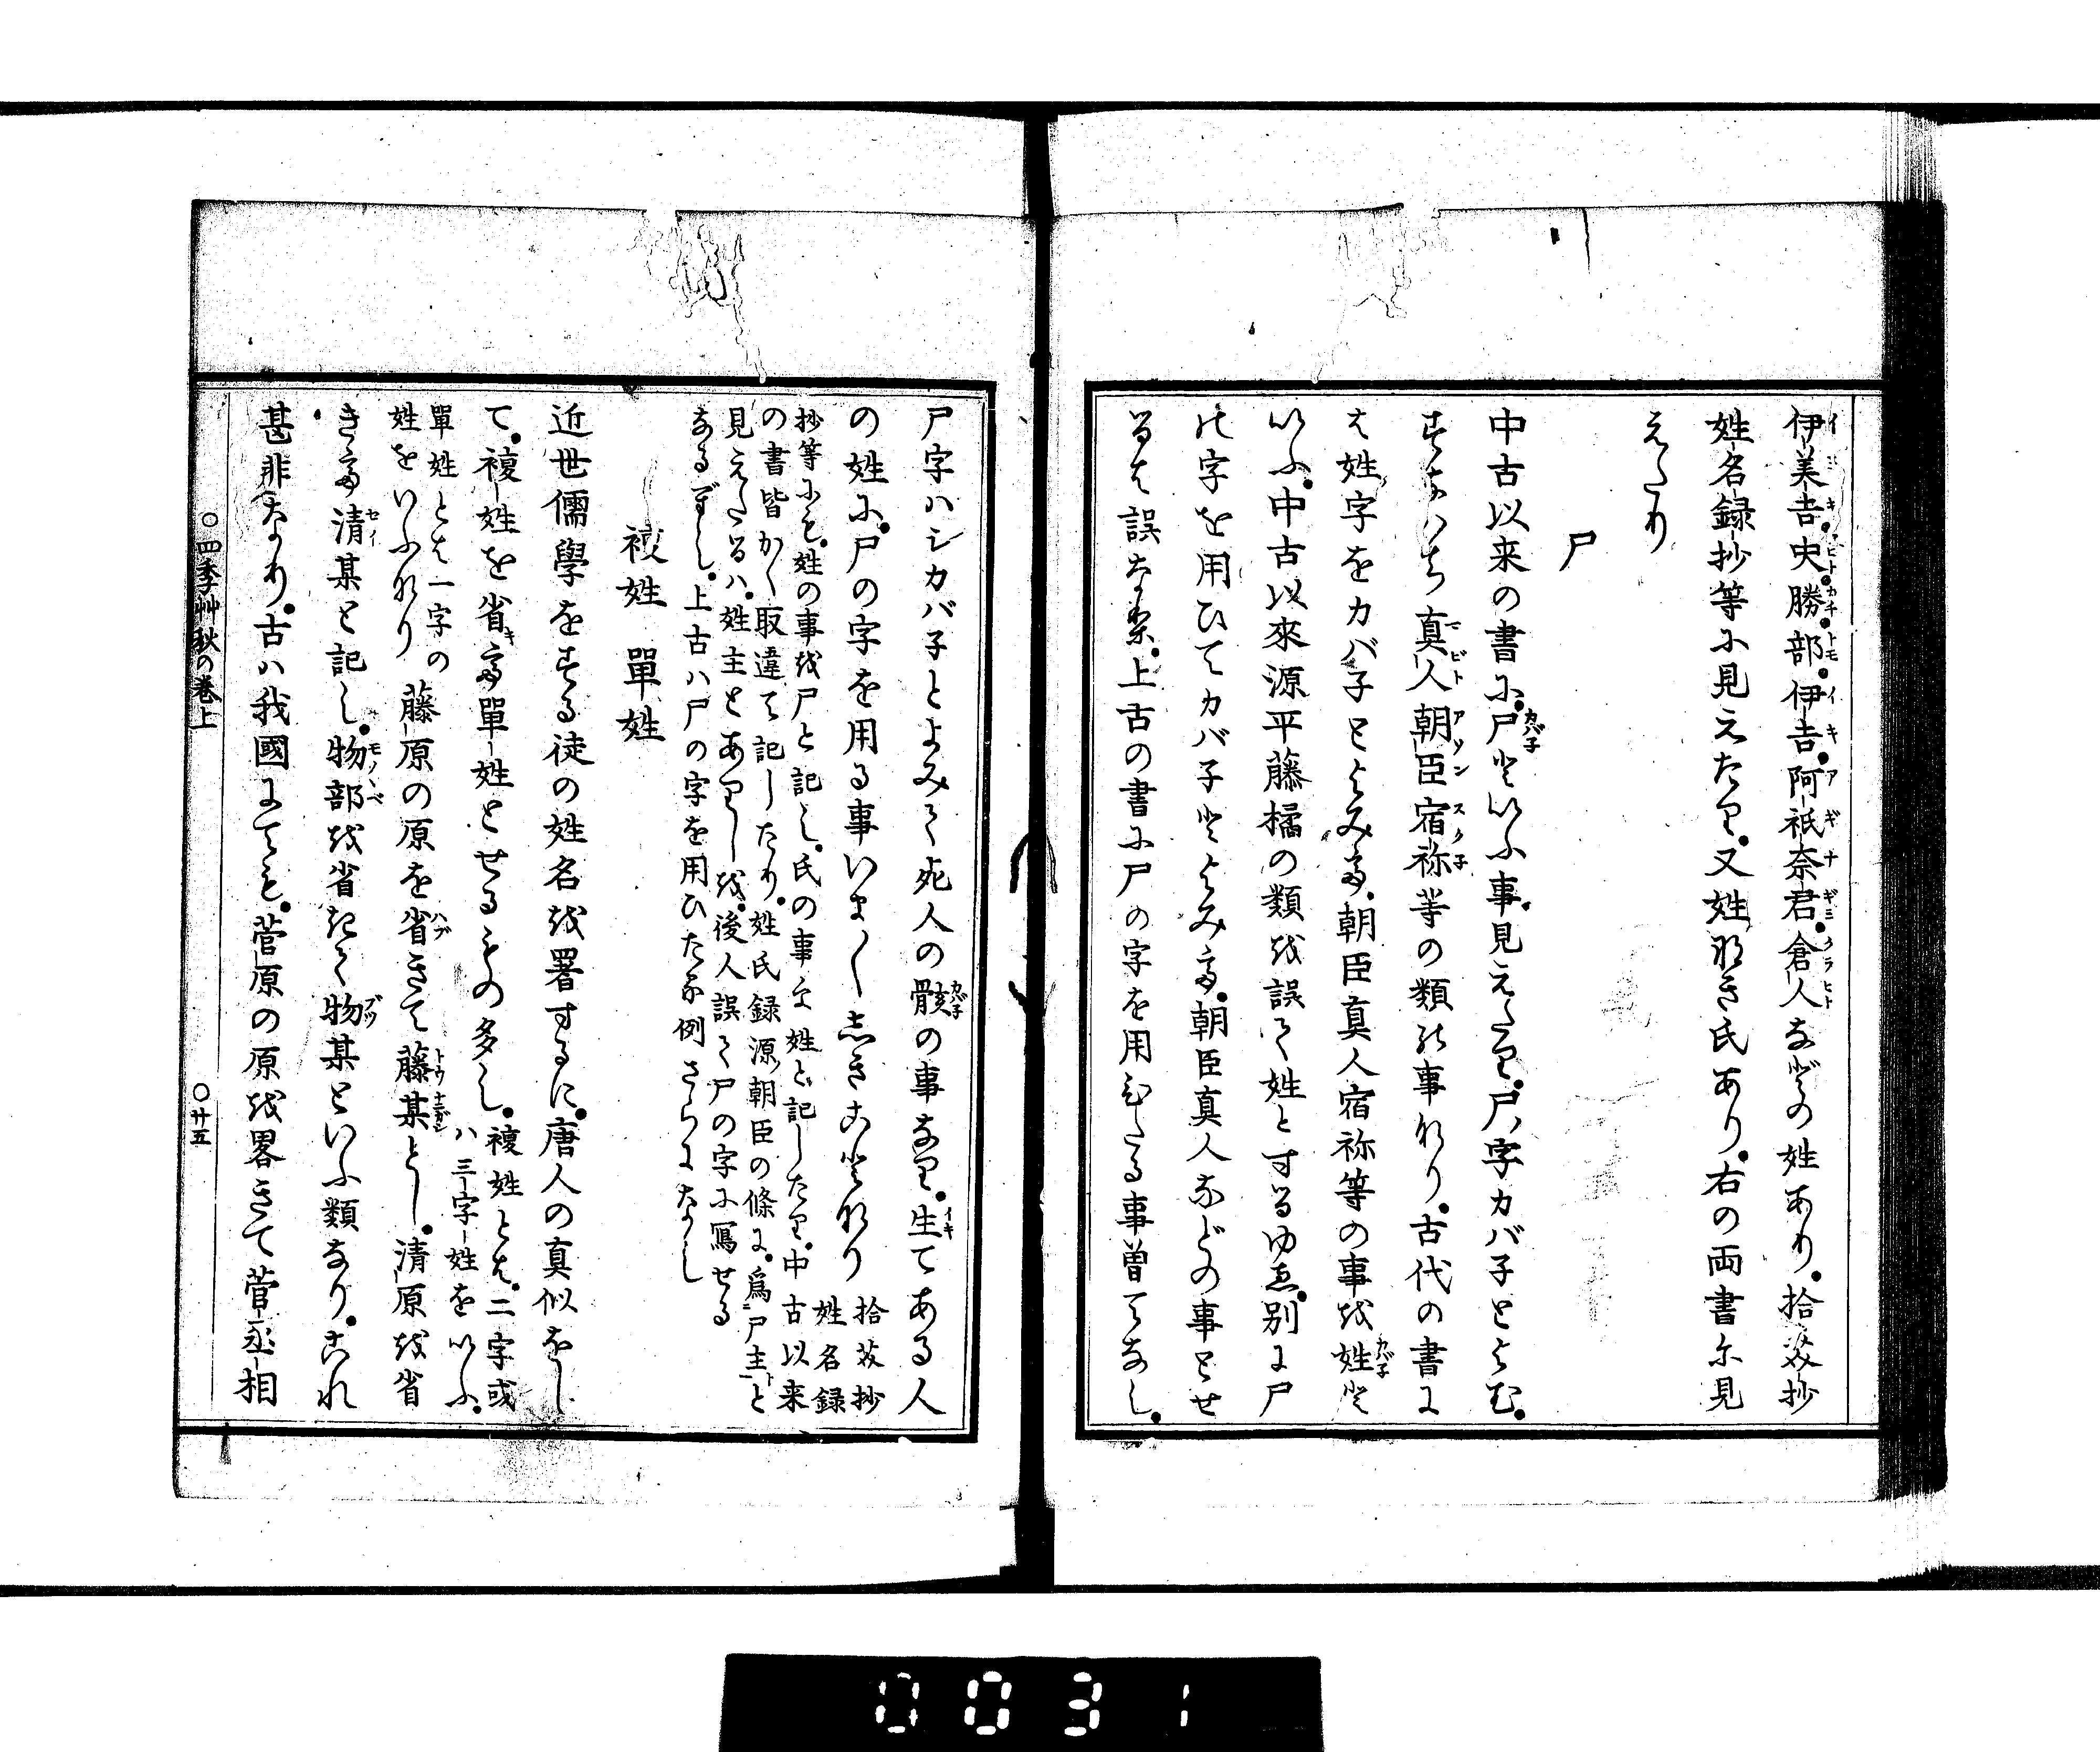 伊美吉史勝部伊吉阿祇奈君倉人などの姓あり拾芥抄
姓名録抄等に見えたり又姓なき氏あり右の両書に見
えたり
尸
中古以来の書に尸といふ事見えたり尸ハ字カバ子とよむ
すなハち真人朝臣宿祢等の類の事なり古代の書に
は姓字をカバ子とよみて朝臣真人宿祢等の事を姓と
いふ中古以來源平藤橘の類を誤て姓とするゆゑ別に尸
の字を用ひてカバ子とよみて朝臣真人などの事とせ
るは誤なり上古の書に尸の字を用ひたる事曽てなし
尸字ハシカバ子とよみて死人の骸の事なり生てある人
の姓に尸の字を用る事いまいましきことなり
拾芥抄姓名録
抄等にも姓の事を尸と記し氏の事を姓と記したり中古以来
の書皆かく取違て記したり姓氏録源朝臣の條に爲尸主と
見えたるハ姓主とありしを後人誤て尸の字に寫せる
なるべし上古ハ尸の字を用ひたる例さらになし
複姓 單姓
近世儒學をする徒の姓名を畧するに唐人の真似をし
て複姓を省て單姓とせるもの多し
複姓とは二字或
ハ三字姓をいふ
單姓とは一字の
姓をいふなり
藤原の原を省きて藤某とし清原を省
きて清某と記し物部を省きて物某といふ類なりこれ
甚非なり古ハ我國にても菅原の原を畧きて菅丞相
○四季艸秋の巻上
○廿五
0031